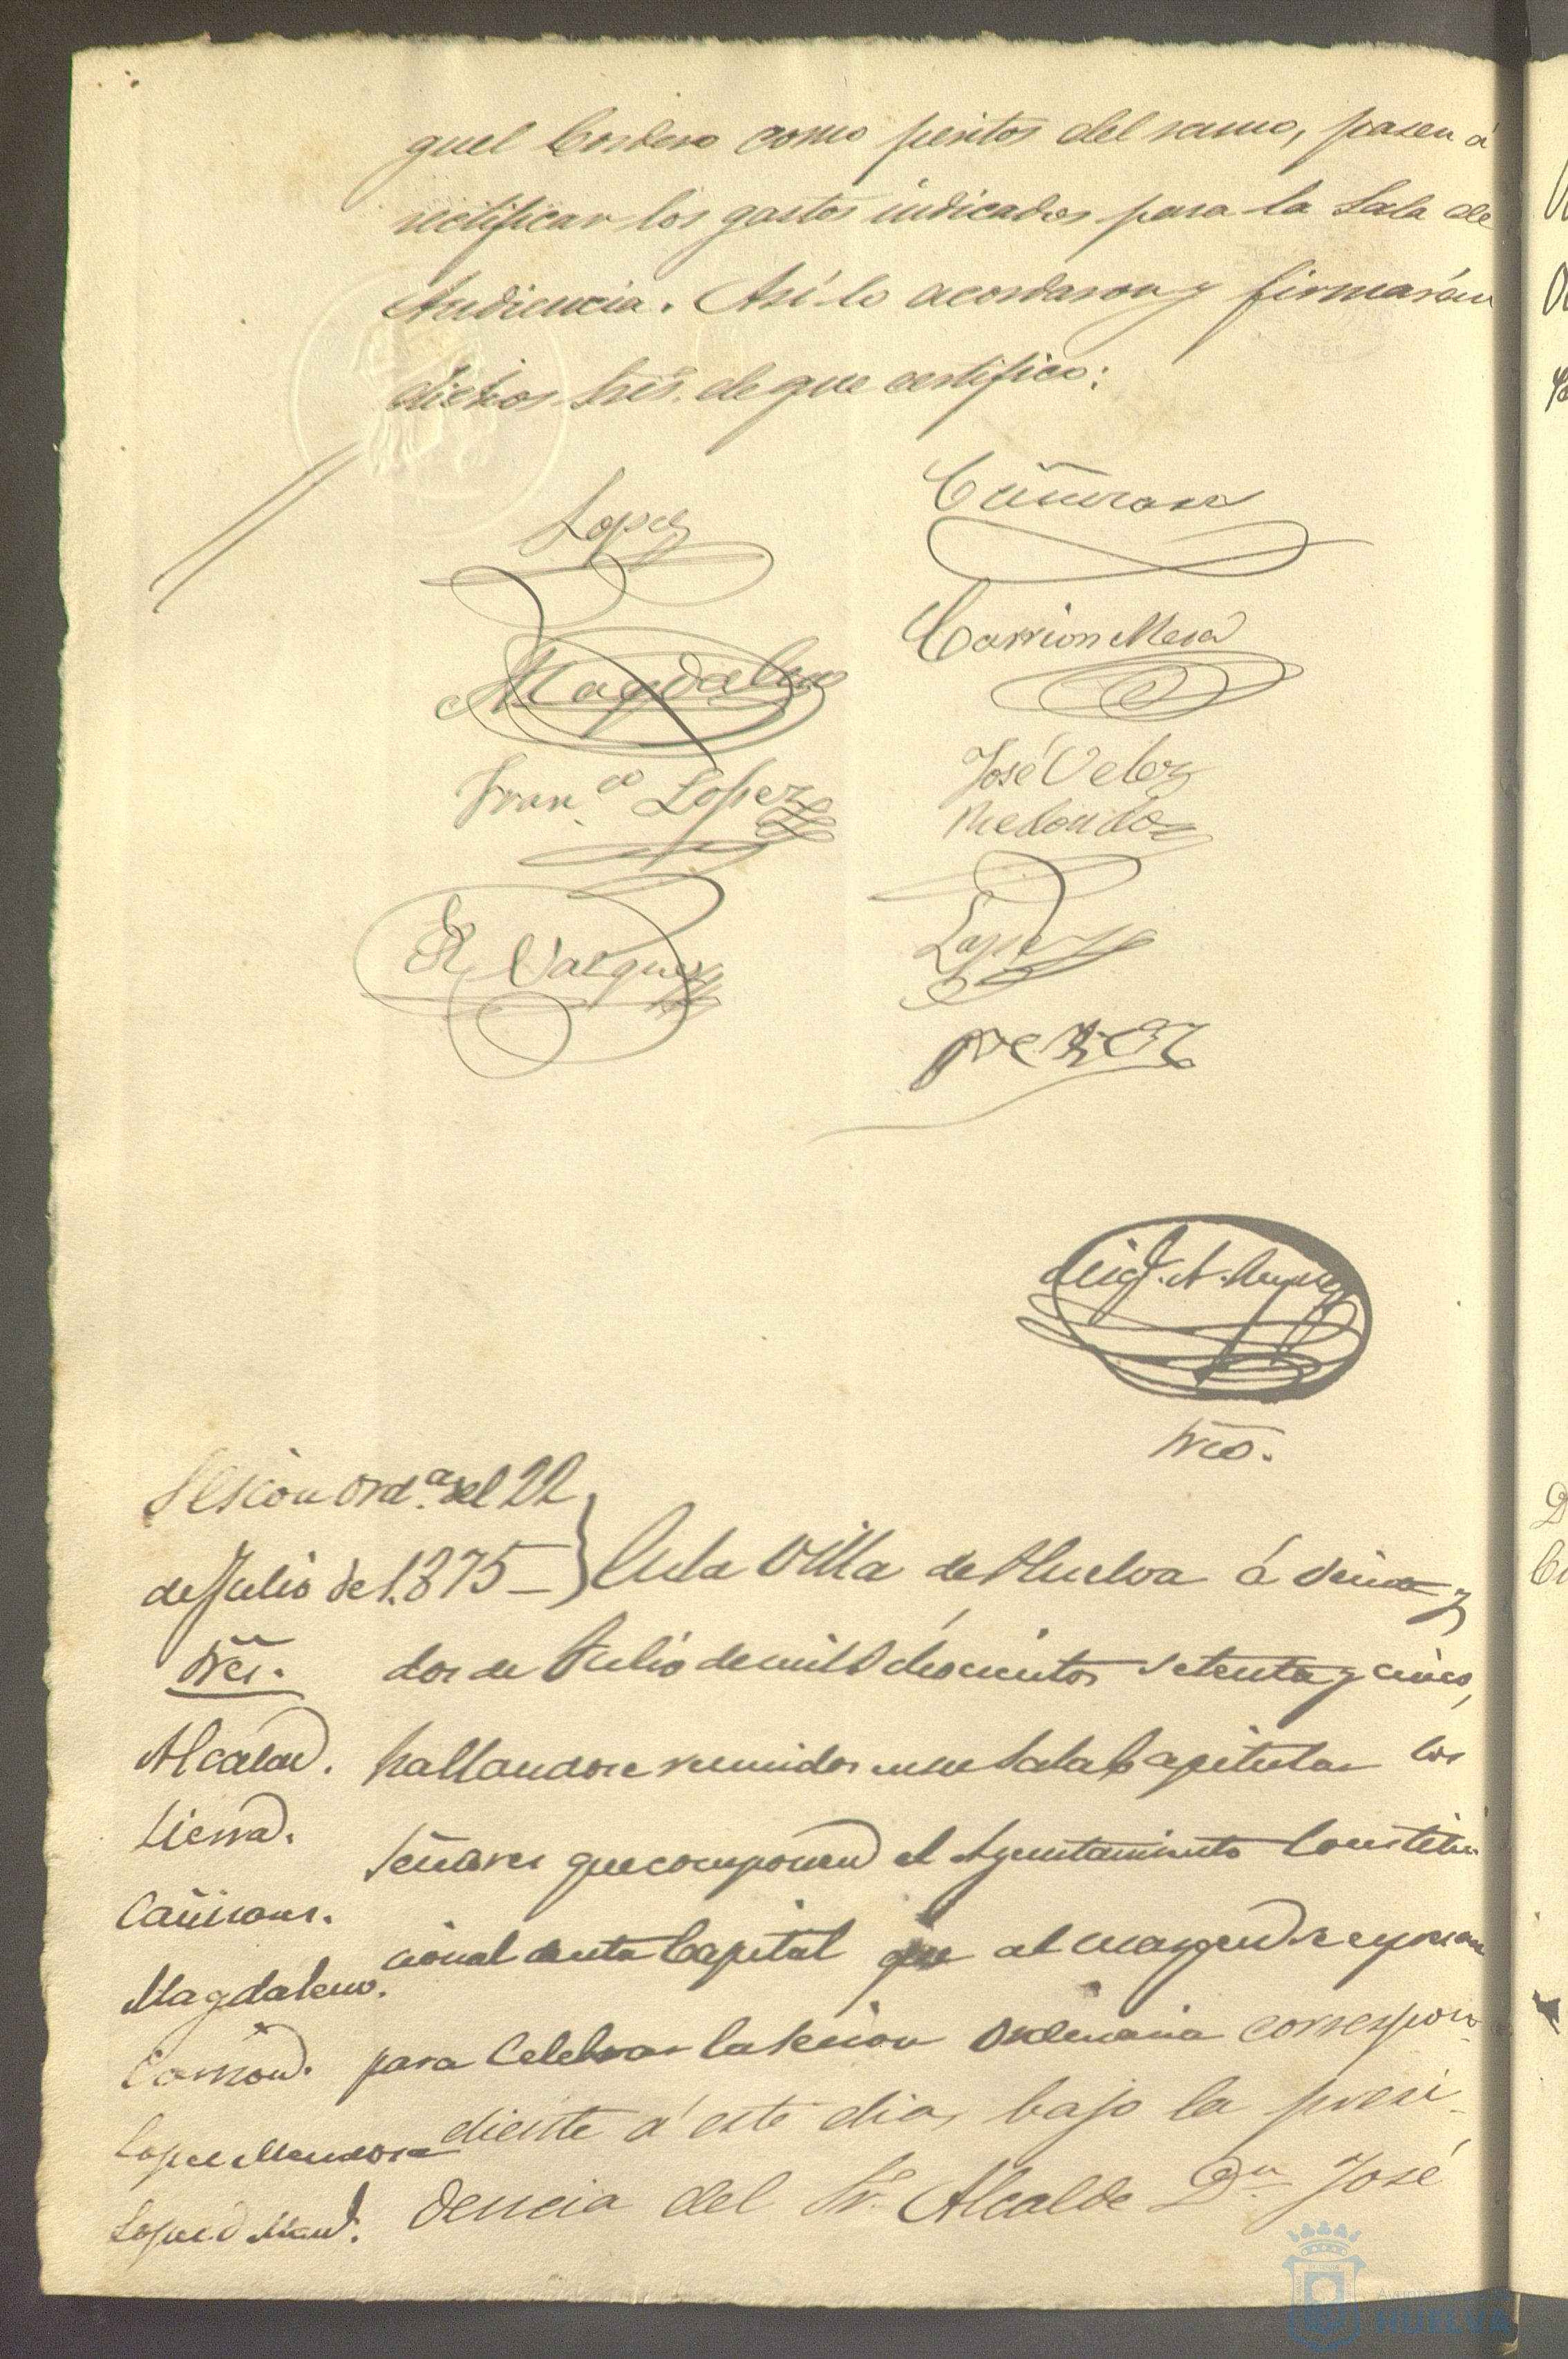 guel Cordero como peritos del ramo, pasen á
rectificar los gastos indicados para la Sala de
Audiencia. Así lo acordaron y firmarán
dichos Sres. de que certifico:
Lopez
Cañizares
Magdaleno
Carrion Mesa
Franco Lopez
José Velez
Redondo
R Vazquez
Lopez
Perez
Srio.
Sesion ordª del 22
de Julio de 1.875
En la Villa de Huelva á veinte y
Sres.
dos de Julio de mil ochocientos setenta y cinco,
Alcalde.
hallandose reunidos en su Sala Capitular los
Sierra.
Señores que componen el Ayuntamiento Constitu
cional de esta Capital que al margen se espresan
Magdaleno.
para celebrar la Sesion Ordinaria correspon
Carrion.
diente á este dia, bajo la presi
Lopez Mendoza
dencia del Sr. Alcalde Dn José
HUELVA